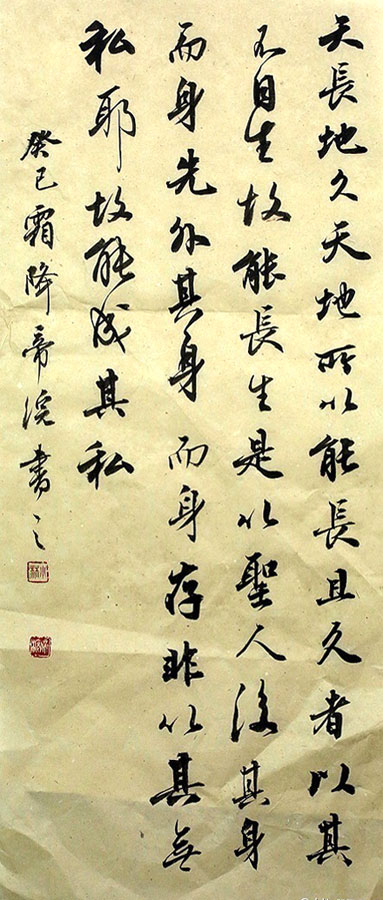 天長地久天地所以能長且久者以其
不自生故能長生是以聖人後其身
而身先外其身而身存非以其無
私耶故能成其私
癸巳霜降帝浣書之